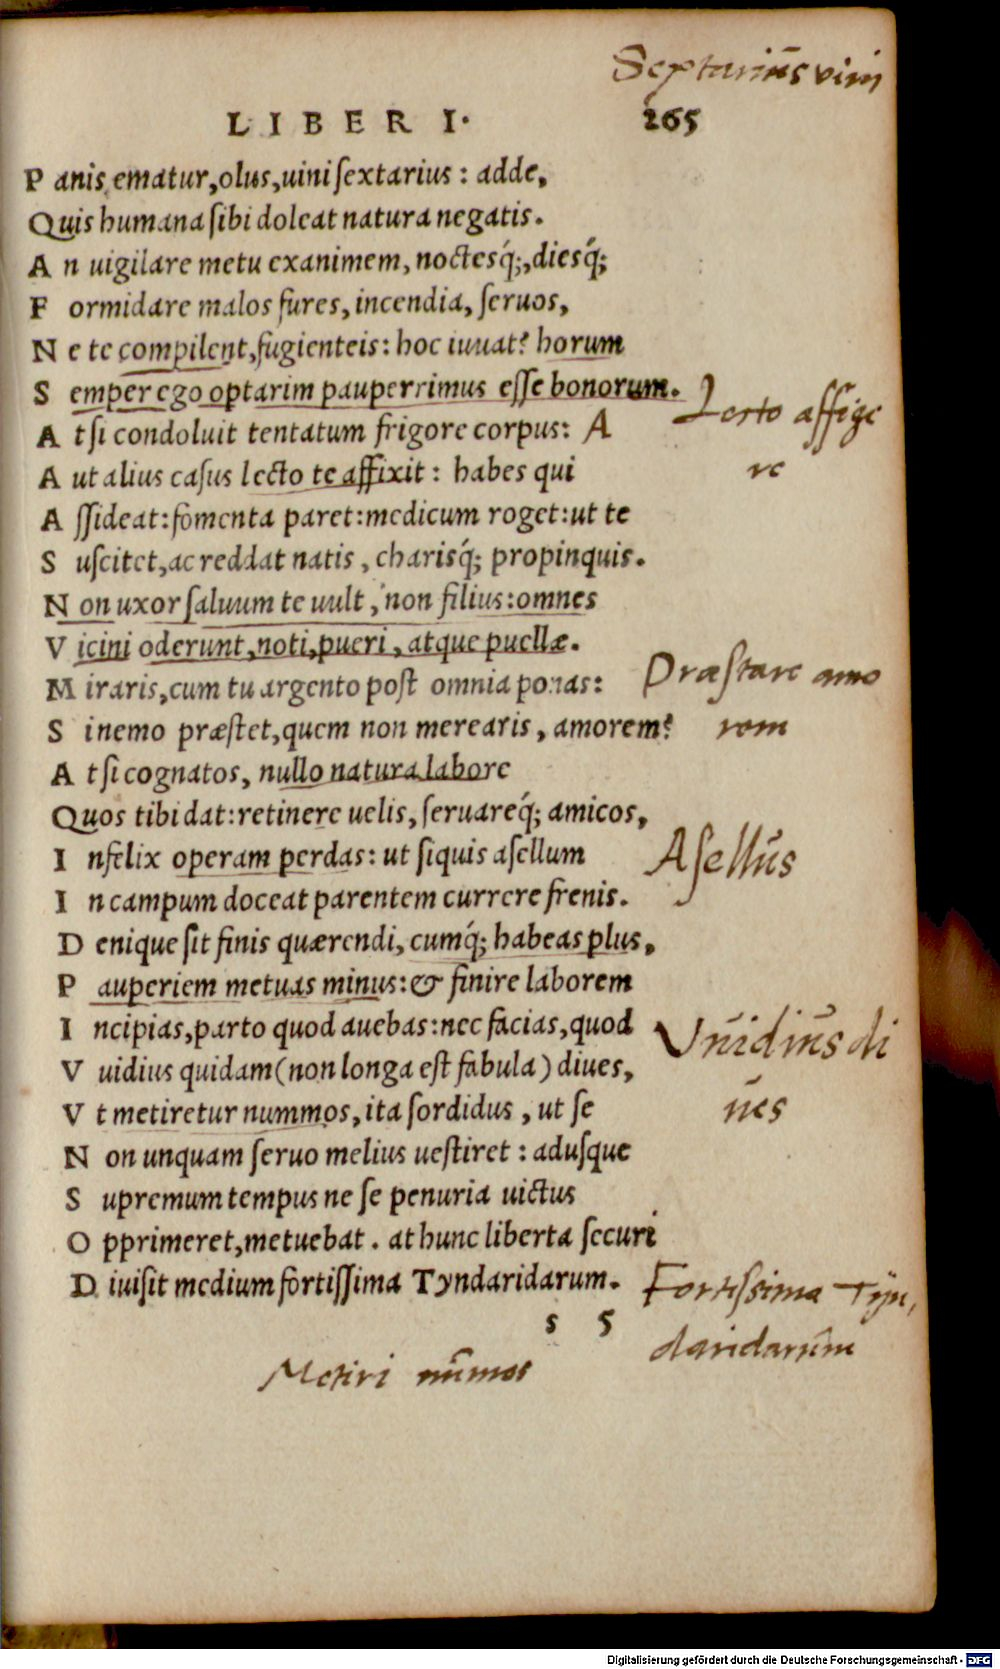 Septariūs vini
LIBER I. 265
P anis ematur,olus,uini ſextarius : adde,
Quis humana ſibi doleat natura negatis.
A n uigilare metu exanimem, noctesq́;,diesq́;
F ormidare malos fures, incendia, ſeruos,
N e te compilent,fugienteis: hoc iuuat? horum
S emper ego optarim pauperrimus eſſe bonorum.
A t ſi condoluit tentatum frigore corpus: A
Lecto affige
A ut alius caſus lecto te affixit : habes qui
re
A ſſideat:fomenta paret:medicum roget:ut te
S uſcitet,ac reddat natis , charisq́; propinquis.
N on uxor ſaluum te uult , non filius:omnes
V icini oderunt,noti,pueri , atque puellæ.
M iraris,cum tu argento poſt omnia ponas:
Præſtare amo
S i nemo præſtet,quem non merearis , amorem?
rem
A t ſi cognatos, nullo natura labore
Quos tibi dat:retinere uelis, ſeruareq́; amicos,
I nfelix operam perdas: ut ſiquis aſellum
Aſellūs
I n campum doceat parentem currere frenis.
D enique ſit finis quærendi, cumq́; habeas plus,
P auperiem metuas minus:& finire laborem
I ncipias,parto quod auebas:nec facias,quod
Vūidiūs di
V uidius quidam(non longa eſt fabula) diues,
ūes
V t metiretur nummos, ita ſordidus , ut ſe
N on unquam ſeruo melius ueſtiret : aduſque
S upremum tempus ne ſe penuria uictus
O pprimeret,metuebat . at hunc liberta ſecuri
D iuiſit medium fortiſſima Tyndaridarum.
Fortiſsima Tyn,
s 5
daridarūm
Metiri nūmos